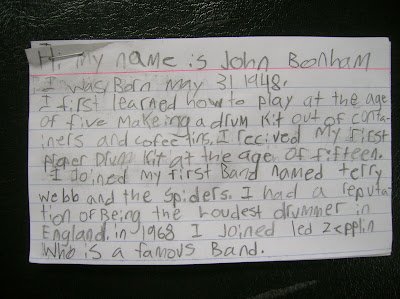 Hi, my name is John Bonham
I was Born may 31 1948.
I first learned how to play at the age
of five makeing a drum kit out of conta-
iners and cofee tins. I recived my first
proper Drum kit at the age of fifteen.
I Joined my first Band named terry
webb and the Spiders. I had a reputa-
tion of Being the Loudest drummer in
England. in 1968 I Joined led zepplin
who is a famous Band.